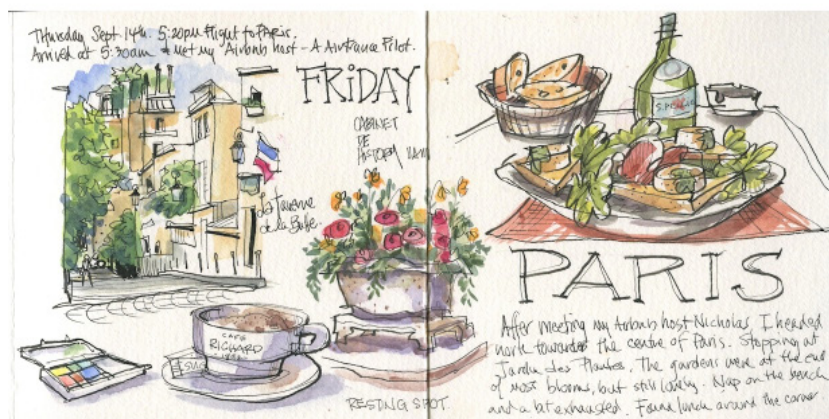 Thursday Sept. 14th. 5:20pm flight to PARIS.
Arrived at 5:30am & met my Airbnb host - A AirFrance Pilot.
FRIDAY
CABINET
DE
HISTOIRE
La Taverne
de la
CAFÉ
RICHARD
RESTING SPOT
S.PELLE
PARIS
After meeting my Airbnb host Nicholas, I headed
north towards the centre of Paris. Stopping at
Jardin des Plantes. The gardens were at the end
of most blooms, but still lovely. Nap on the bench
and a bit exhausted. Found lunch around the corner.